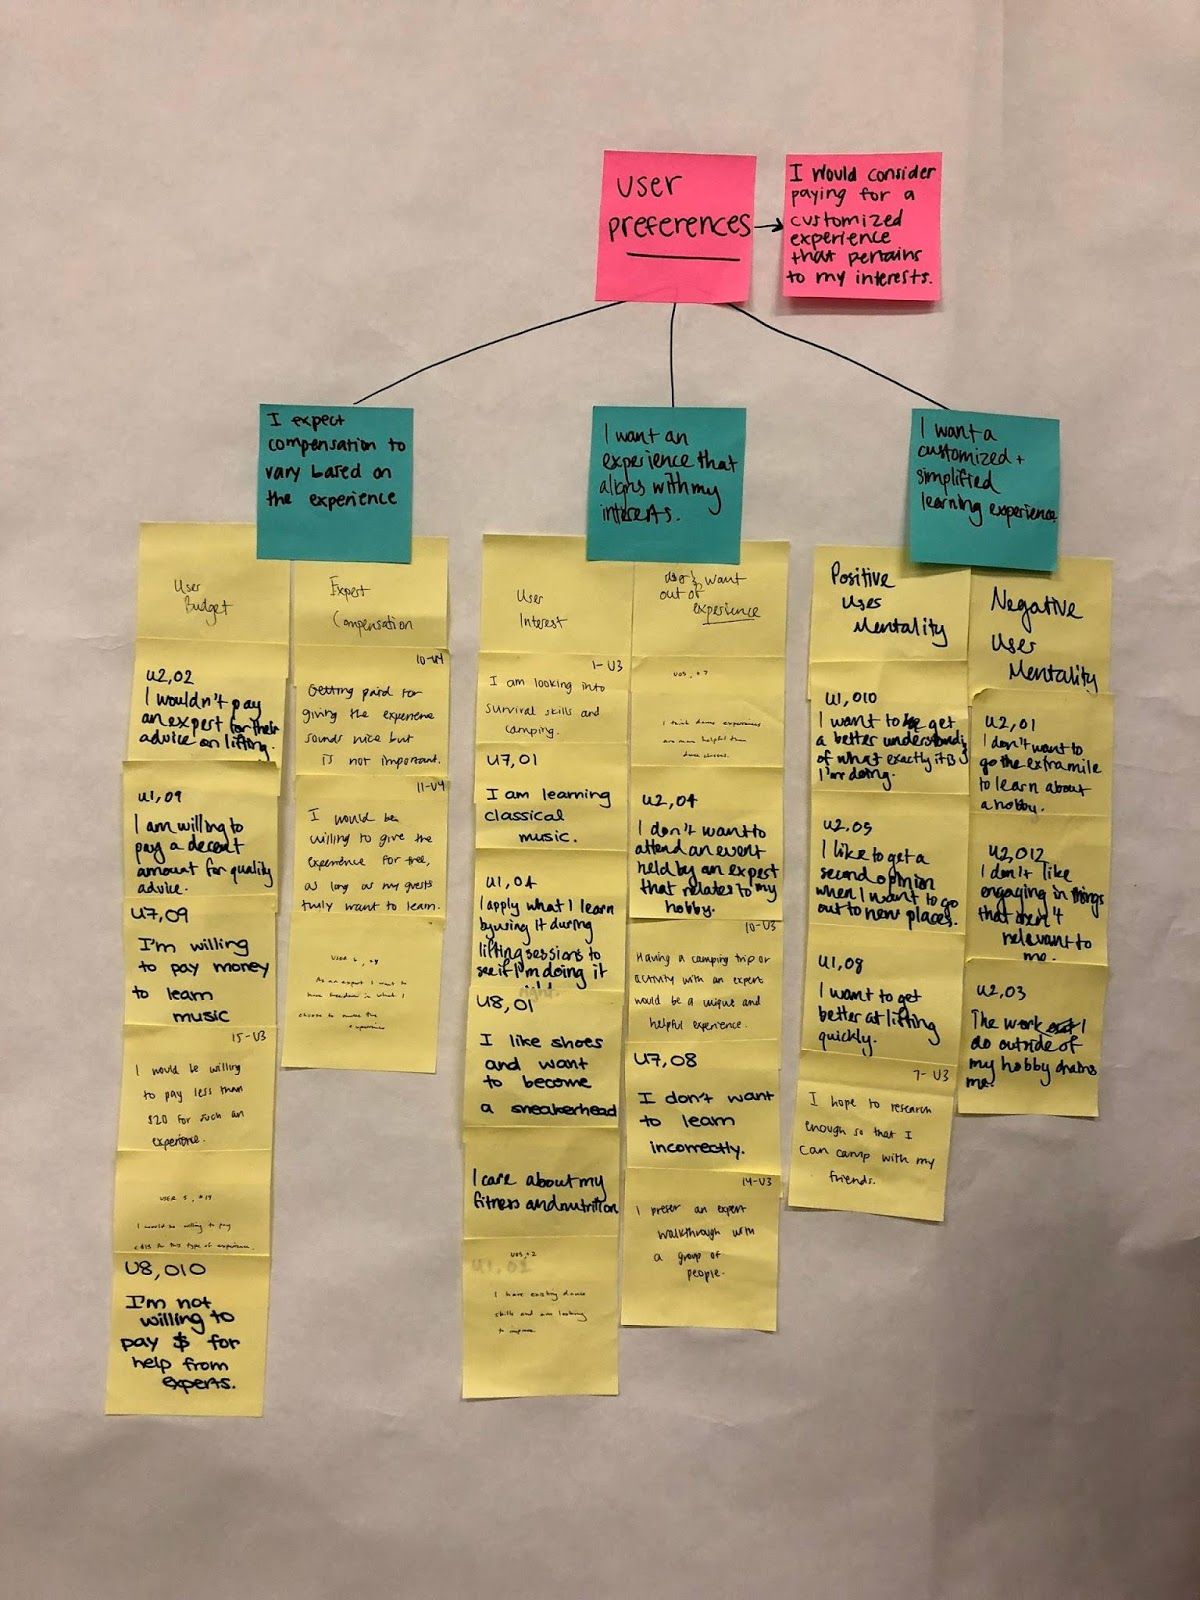 USER
preferences
I would consider
paying for a
customized
experience
that pertains
to my interests.
I expect
compensation to
vary based on
the experience
I want an
experience that
aligns with my
interests.
I want a
customized +
simplified
learning experience.
User
Budget
U2,02
I wouldn't pay
an expert for their
advice on lifting.
U1,09
I am willing to
pay a decent
amount for quality
advice.
U7,09
I'm willing
to pay money
to learn
music
15-U3
I would be willing
to pay less than
$20 for such an
experience.
USER 5, #14
I would be willing to pay
for this type of experience.
U8,010
I'm not
willing to
pay $ for
help from
experts.
Expert
Compensation
10-U4
Getting paid for
giving the experience
sounds nice but
is not important.
11-U4
I would be
willing to give the
experience for free,
as long as my guests
truly want to learn.
As an expert I want to
have freedom in what I
choose to make the
experience
User
Interest
1-U3
I am looking into
survival skills and
camping.
U7,01
I am learning
classical
music.
U1,04
I apply what I learn
by using it during
lifting sessions to
see if I'm doing it
right.
U8,01
I like shoes
and want
to become
a sneakerhead
I care about my
fitness and nutrition
U05, #2
I have existing dance
skills and am looking
to improve
want
out of
experience
U05, #7
I think dance experiences
are more helpful than
dance classes.
U2,04
I don't want to
attend an event
held by an expert
that relates to my
hobby.
10-U3
Having a camping trip or
activity with an expert
would be a unique and
helpful experience.
U7,08
I don't want
to learn
incorrectly.
14-U3
I prefer an expert
walkthrough with
a group of
people.
Positive
User
Mentality
U1,010
I want to get
a better understanding
of what exactly it is
I'm doing.
U2,05
I like to get a
second opinion
when I want to go
out to new places.
U1,08
I want to get
better at lifting
quickly.
7-U3
I hope to research
enough so that I
can camp with my
friends.
Negative
User
Mentality
U2,01
I don't want to
go the extra mile
to learn about
a hobby.
U2,012
I don't like
engaging in things
that aren't
relevant to
me.
U2,03
The work I
do outside of
my hobby drains
me.